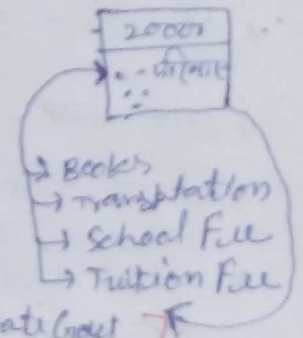 20000
परिवार
→ Books
→ Transpotation
→ School Fee
→ Tuition Fee
ate Govt